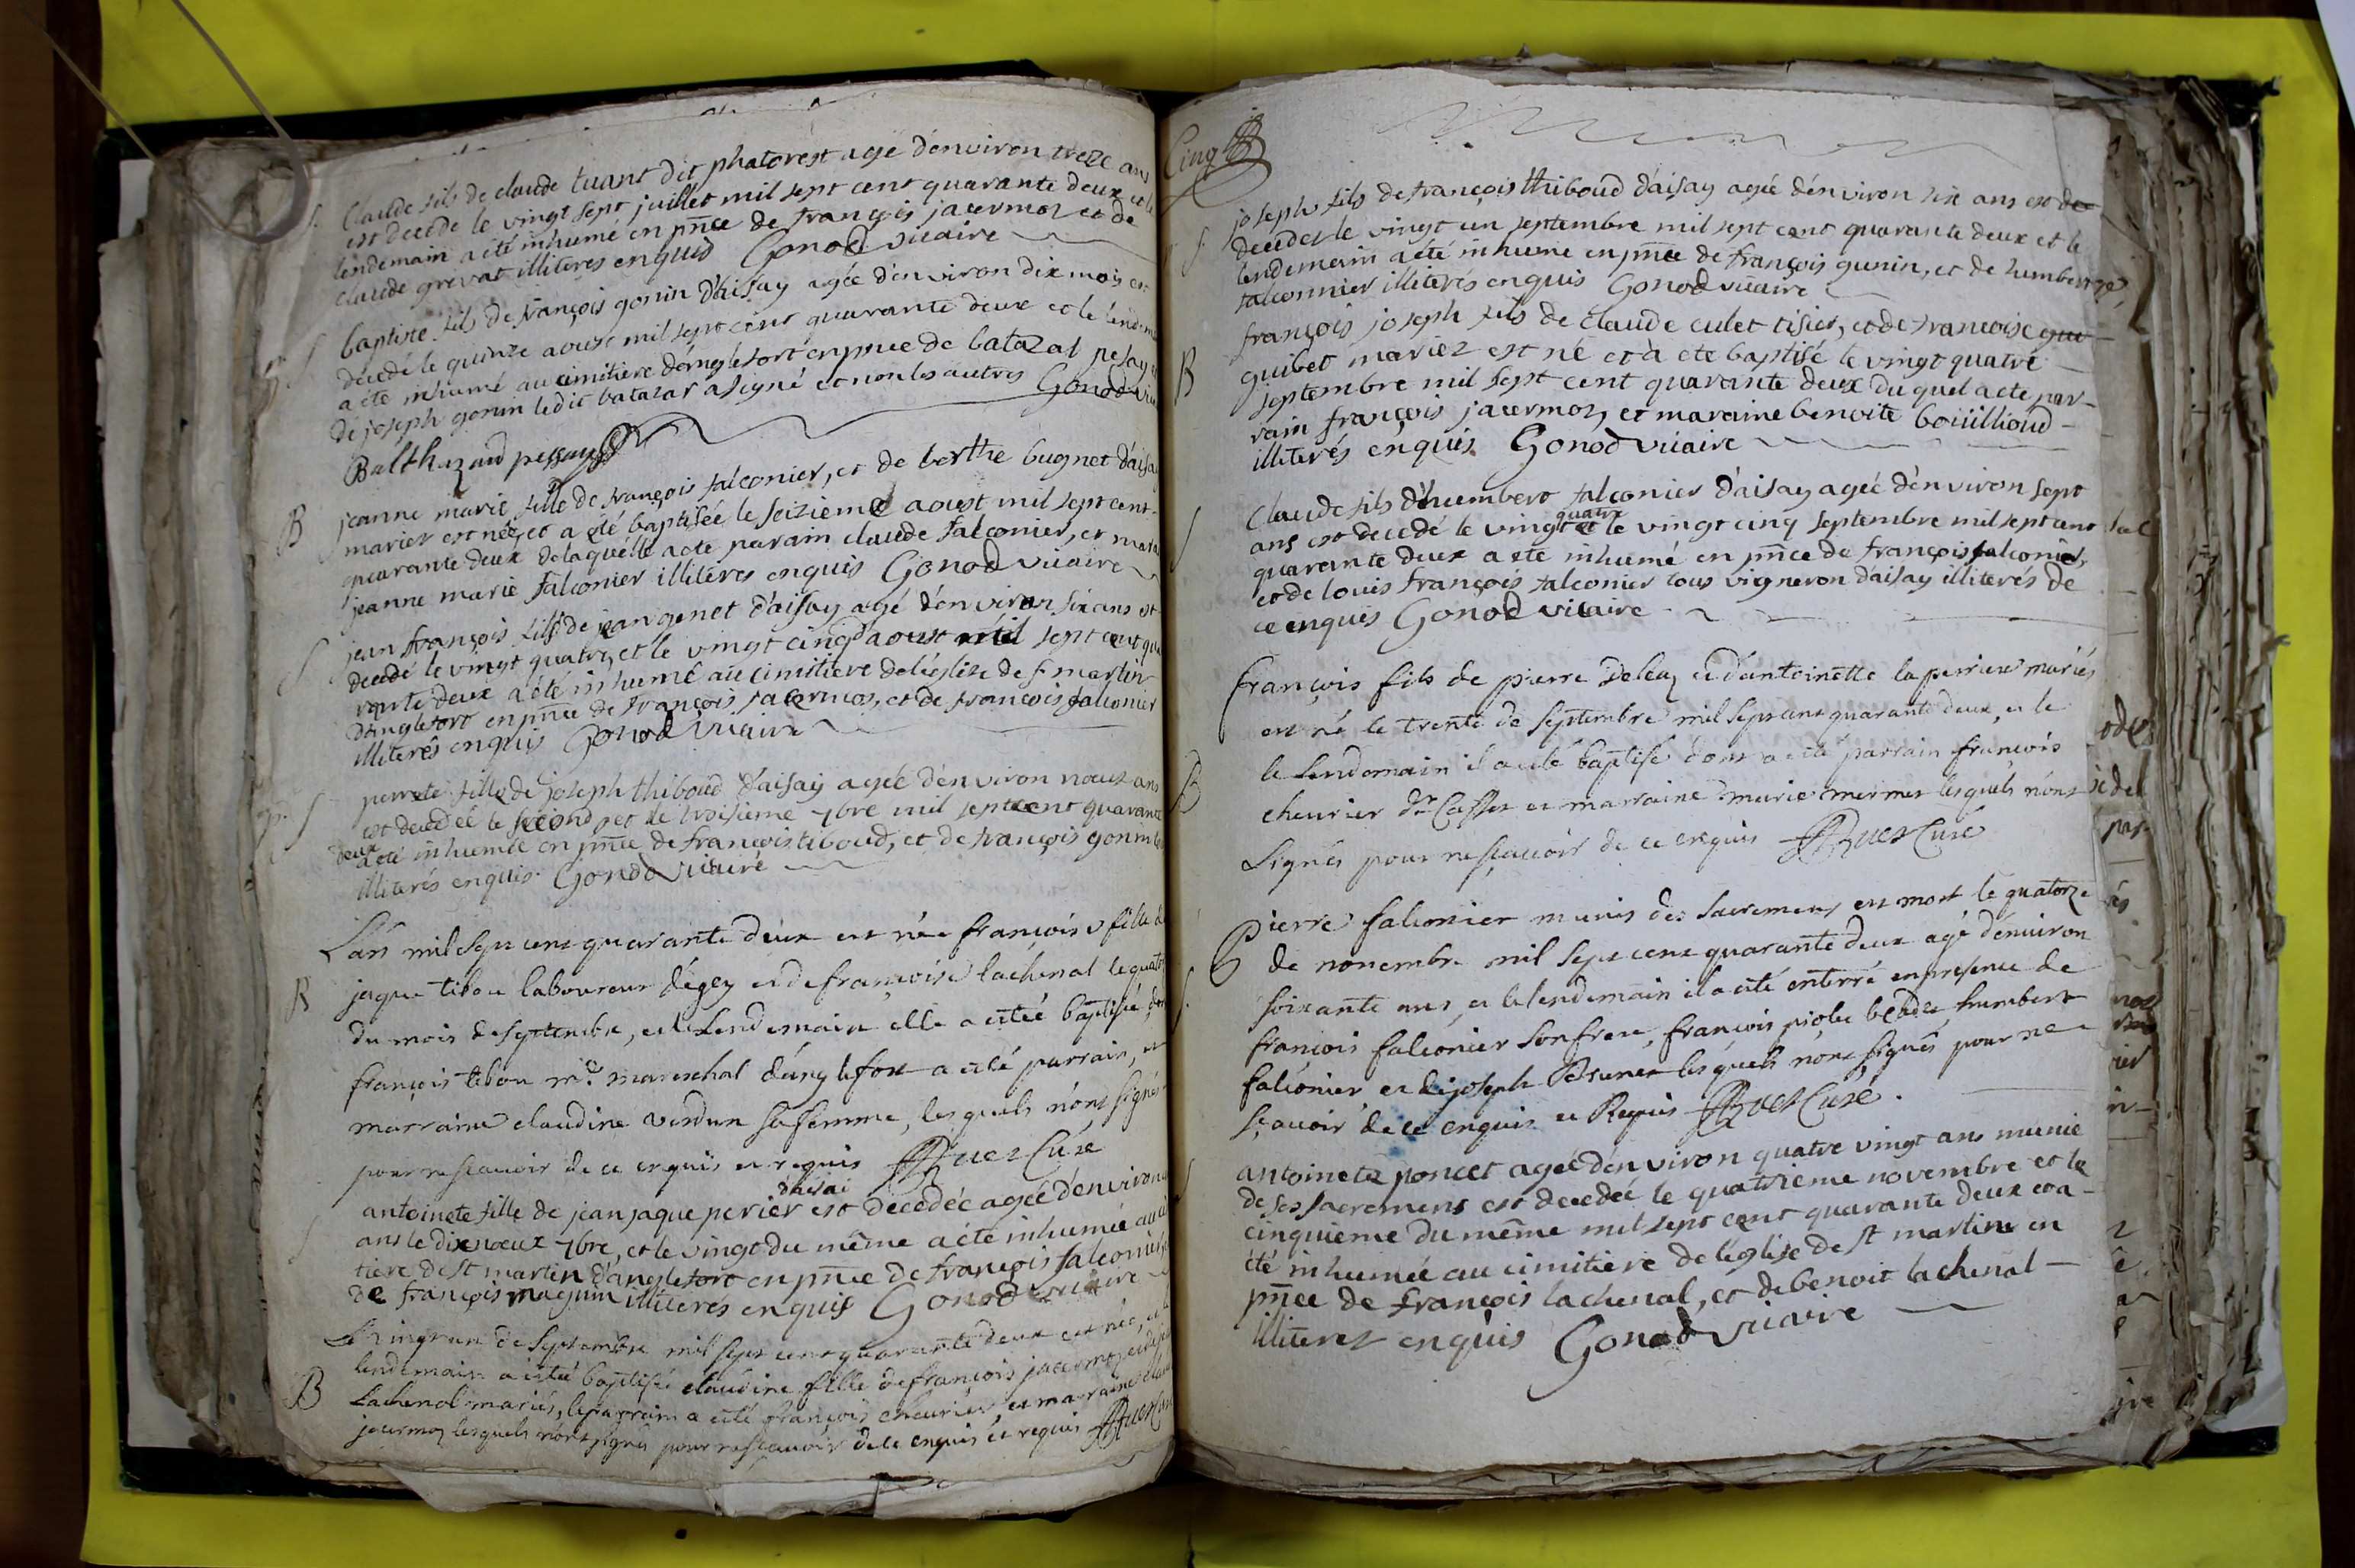 S. Claude fils de claude tuant dit phatorest agé d'environ treze ans
est decedé le vingt sept juillet mil sept cent quarante deux et le
lendemain a été inhumé en pñce de françois jacermoz et de
claude grevat illiteres enquis Gonod vicaire
S baptiste fils de françois gonin d'aisay agée d'environ dix mois est
decedé le quinze aoust mil sept cent quarante deux et le lendem
a été inhumé au cimitiere d'anglefort en pñce de batazal pesay
de joseph gonin ledit batazar a signé et non les autres Gonod vic
Balthazard pessay
B jeanne marie fille de françois falconier, et de berthe bugnet d'aisa
mariez est née et a été baptisée le seizieme aoust mil sept cent
quarante deux de laquelle a été parain claude falconier, et mara
jeanne marie falconier illiteres enquis Gonod vicaire
S jean françois fils de jean genet d'aisay agé d'environ six ans est
decedé le vingt quatre, et le vingt cinq d'aoust mil sept cent qua
rante deux a été inhumé au cimitiere de l'église de s martin
d'anglefort en pñce de françois jacermoz, et de françois falconier
illiterés enquis Gonod vicaire
S perrete fille de joseph thiboud d'aisay agée d'environ neuf ans
est decedée le second et le troisieme 7bre mil sept cent quarante
deux a été inhumée en pñce de françois tiboud, et de françois gonin
illiterés enquis. Gonod vicaire
L'an mil sept cent quarante deux est née françoise fille de
B jaque tibou laboureur d'egey et de françoise lachenal le quator
du mois de septembre, et le lendemain elle a estée baptisée, don
françois tibou md mareschal d'anglefort a esté parrain, et
marraine claudine verdun sa femme, lesquels n'ont signés
pour ne scavoir de ce enquis et requis Ruez Curé
d'aisai
S antoinete fille de jean jaque perier est decedée agée d'environ
ans le dixneuf 7bre, et le vingt du même a été inhumée au ci
tiere de st martin d'anglefort en pñce de françois falconier
de françois magnin illiterés enquis Gonod vicaire
Le vingt un de septembre mil sept cent quarante deux est née, et le
lendemain a estée baptisée claudine fille de françois jacermoz et de
B Lachenal mariés, le parrain a esté françois cheurier, et marraine clau
jacermoz lesquels n'ont signés pour ne scavoir de ce enquis et requis Ruez Curé
Cinq
joseph fils de françois thiboud d'aisay agée d'environ six ans est de
S decedez le vingt un septembre mil sept cent quarante deux et le
lendemain a été inhumé en pñce de françois gunin, et de humbert
falconnier illiterés enquis Gonod vicaire
françois joseph fils de claude culet tisier, et de françoise gui
B guibet mariez est né et à eté baptisé le vingt quatre
septembre mil sept cent quarante deux du quel a eté par-
rain françois jacermoz, et maraine benoite bouillioud
illiterés enquis Gonod vicaire
S Claude fils d'humbert falconier d'aisay ageé d'environ sept
quatre
ans est decedé le vingt et le vingt cinq septembre mil sept cent
quarante deux a eté inhumé en pñce de françois falconier,
et de louis françois falconier tous vigneron d'aisay illiterés de
ce enquis Gonod vicaire
françois fils de pierre Deleaz et d'antoinette la perriere mariés
est né le trente de septembre mil sept cent quarante deux, et le
B le lendemain il a esté baptisé dont a esté parrain françois
cheurier dr Casses et marraine marie mermet lesquels n'ont
signés pour ne scavoir de ce enquis Ruez Curé
Pierre falconier munis des sacremens est mort le quatorze
de novembre mil sept cent quarante deux agé d'environ
S. soixante ans, et le lendemain il a esté enterré en presence de
françois falconier son frere, françois piolu bedea, humbert
falconier, et de joseph Brunet lesquels n'ont signés pour ne
scavoir de ce enquis et Requis Ruez Curé.
S antoinete poncet agée d'environ quatre vingt ans munie
de ses sacremens est decedée le quatrieme novembre et le
cinquieme du même mil sept cent quarante deux et a
été inhumée au cimitiere de l'église de st martin en
pñce de françois lachenal, et de benoit lachenal
illiterez enquis Gonod vicaire